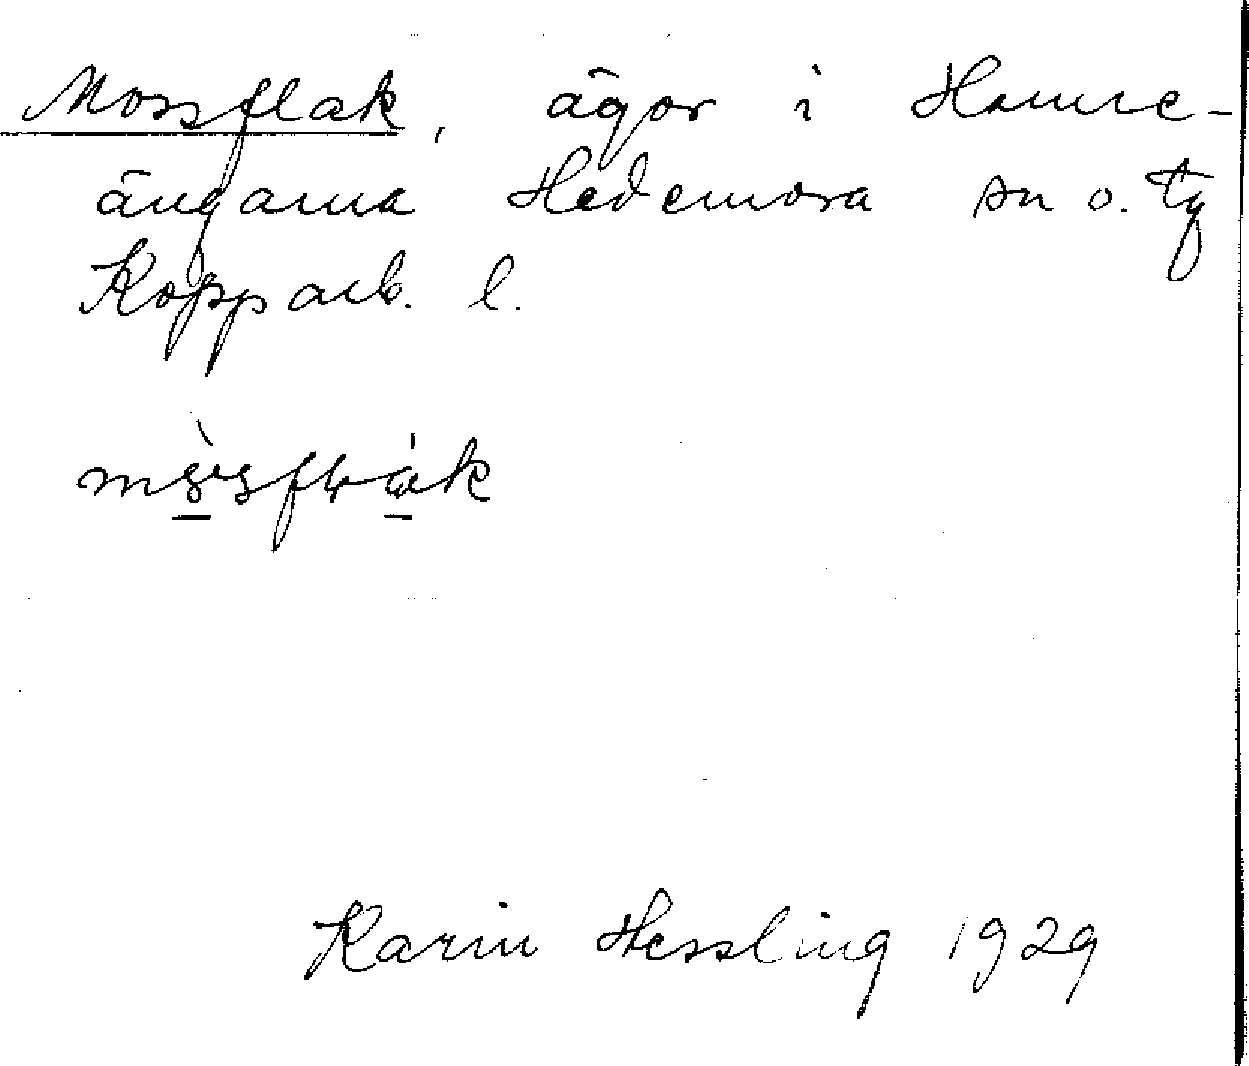 Mossflak, ägor i Hamre-
ängarna Hedemora sn o. tg
Kopparb. l.
Karin Hessling 1929